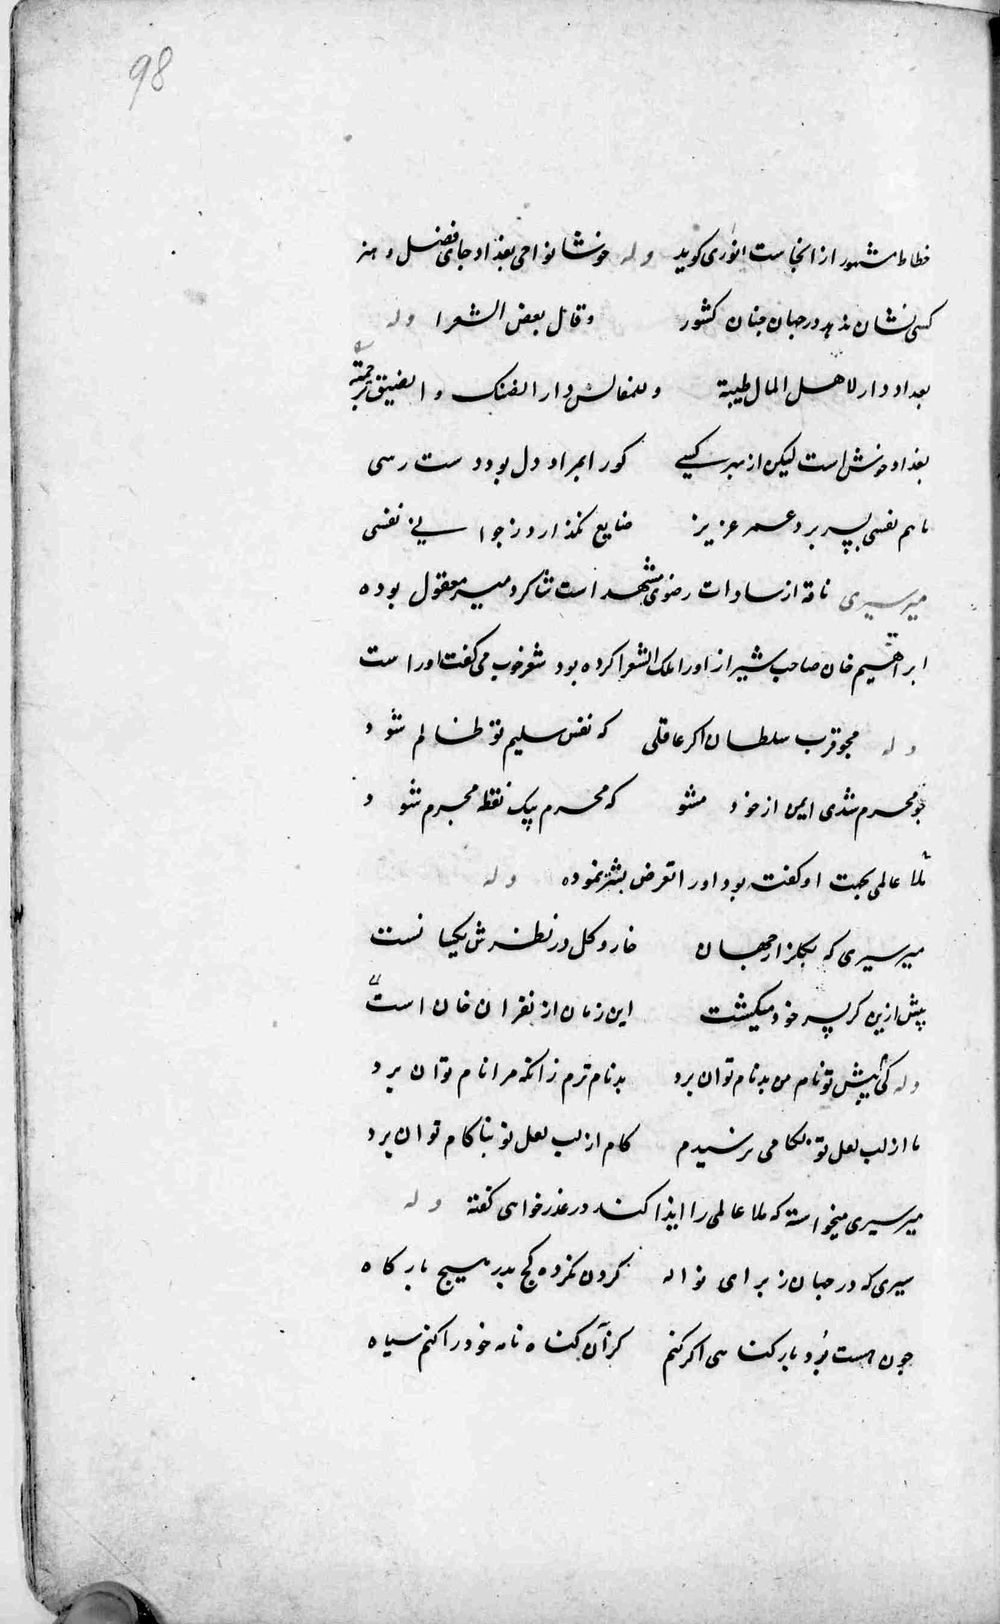 98
خطاط مشهور از انجاست انوری کوید وله خوشا نواحی بغداد جای فضل و هنر
کسی نشان ندهد در جهان چنان کشور وقال بعض الشعرا وله
بغداد دار لاهل المال طیبة وللمفالس دار الضنک و الضیق ترجمته
بغداد خوش است لیکن از بهر کسی کورا بمراد دل بود دست رسی
با هم نفسی بسر برد عمر عزیز ضایع نکذارد ز جوانی نفسی
میر سیری نامه از سادات رضوی مشهد است شاکرد میر معقول بوده
ابراهیم خان صاحب شیراز اورا ملک الشعرا کرده بود شعر خوب می کفت اوراست
وله مجو قرب سلطان اکر عاقلی که نفس سلیم تو ظالم شود
چو محرم شدی ایمن از خود مشو که محرم بیک نقطه مجرم شود
ملا عالمی بجهت او کفته بود اورا تعرض بشتر نموده وله
میر سیری که بکلزار جهان خار و کل در نظرش یکسانست
پیش ازین کر پسر خود میکشت این زمان از نفران خان است
وله کی پیش تو نام من بدنام توان برد بدنام ترم زانکه مرا نام توان برد
ما از لب لعل تو بکامی نرسیدم کام از لب لعل تو بناکام توان برد
میر سیری میخواسته که ملا عالمی را ایذا کند در عذر خواهی کفته وله
سیری که در جهان ز برای نواله کردن نکرده کج بدر هیچ بارکاه
چون هست بُرد بار کناهی اکر کنم کز آن کناه نامه خود را کنم سیاه